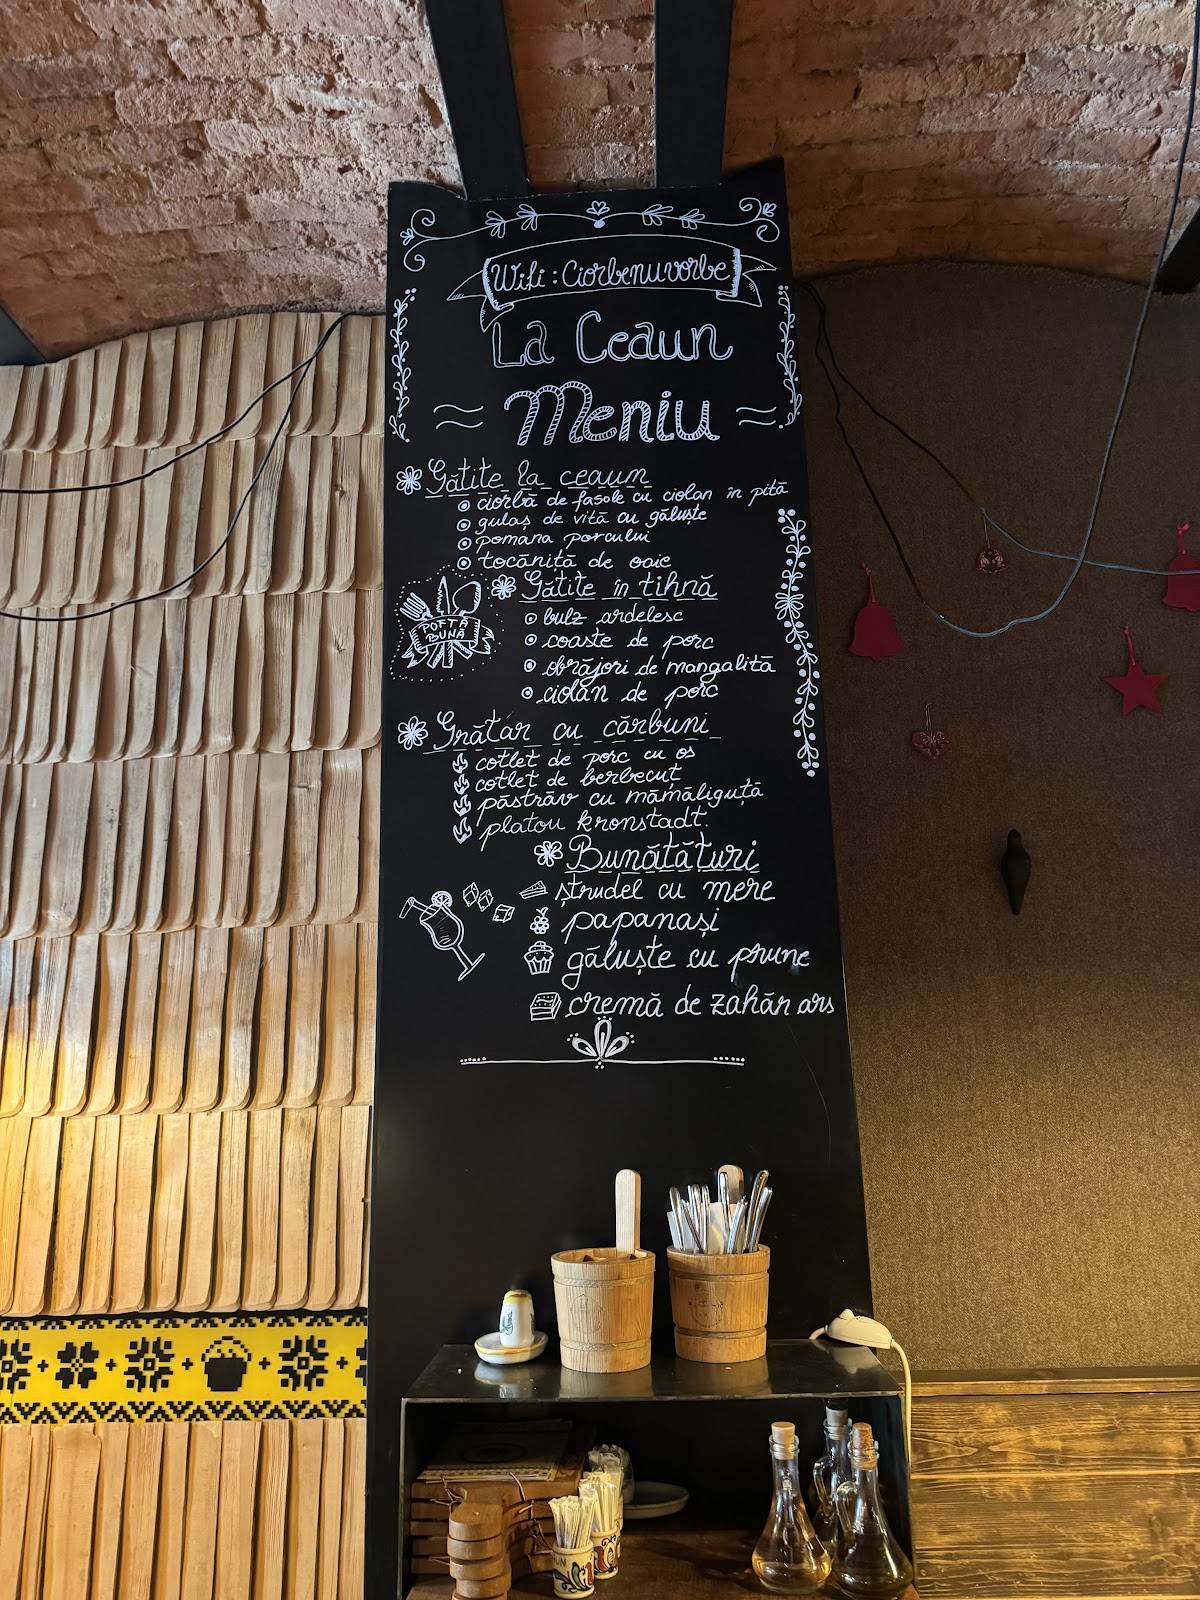 Wifi : Ciorbenuvorbe
La Ceaun
Meniu
Gătite la ceaun
ciorbă de fasole cu ciolan în pită
gulaș de vită cu găluște
pomana porcului
tocăniță de oaie
POFTĂ
BUNĂ
Gătite în tihnă
bulz ardelesc
coaste de porc
obrăjori de mangaliță
ciolan de porc
Grătar cu cărbuni
cotlet de porc cu os
cotlet de berbecuț
păstrăv cu mămăliguță
platou kronstadt.
Bunătături
ștrudel cu mere
papanași
găluște cu prune
cremă de zahăr ars